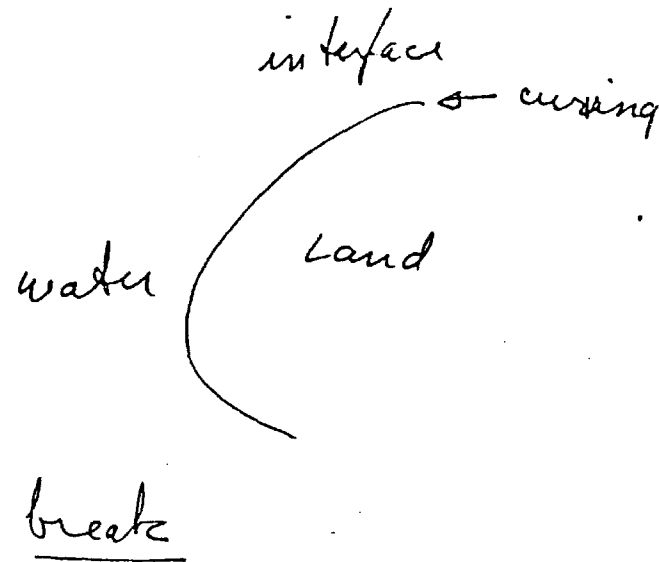 interface
curving
water
Land
break